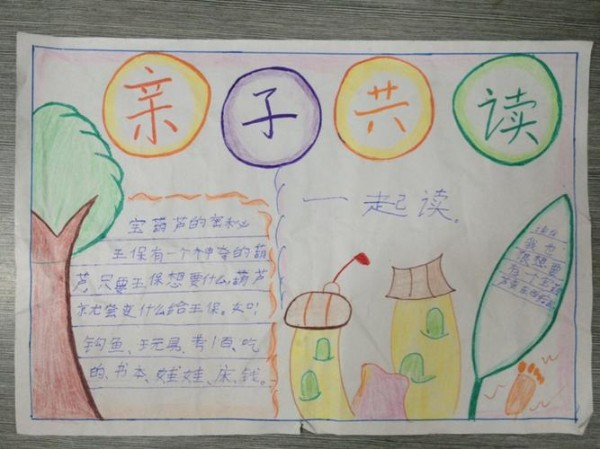 亲子共读
一起读.
宝葫芦的密秘
王保有一个神奇的葫
芦,只要王保想要什么,葫芦
就会变什么给王保。如
钓鱼、玩具、考100、吃
的、书本、娃娃、床、钱。
现在
我也
很想要